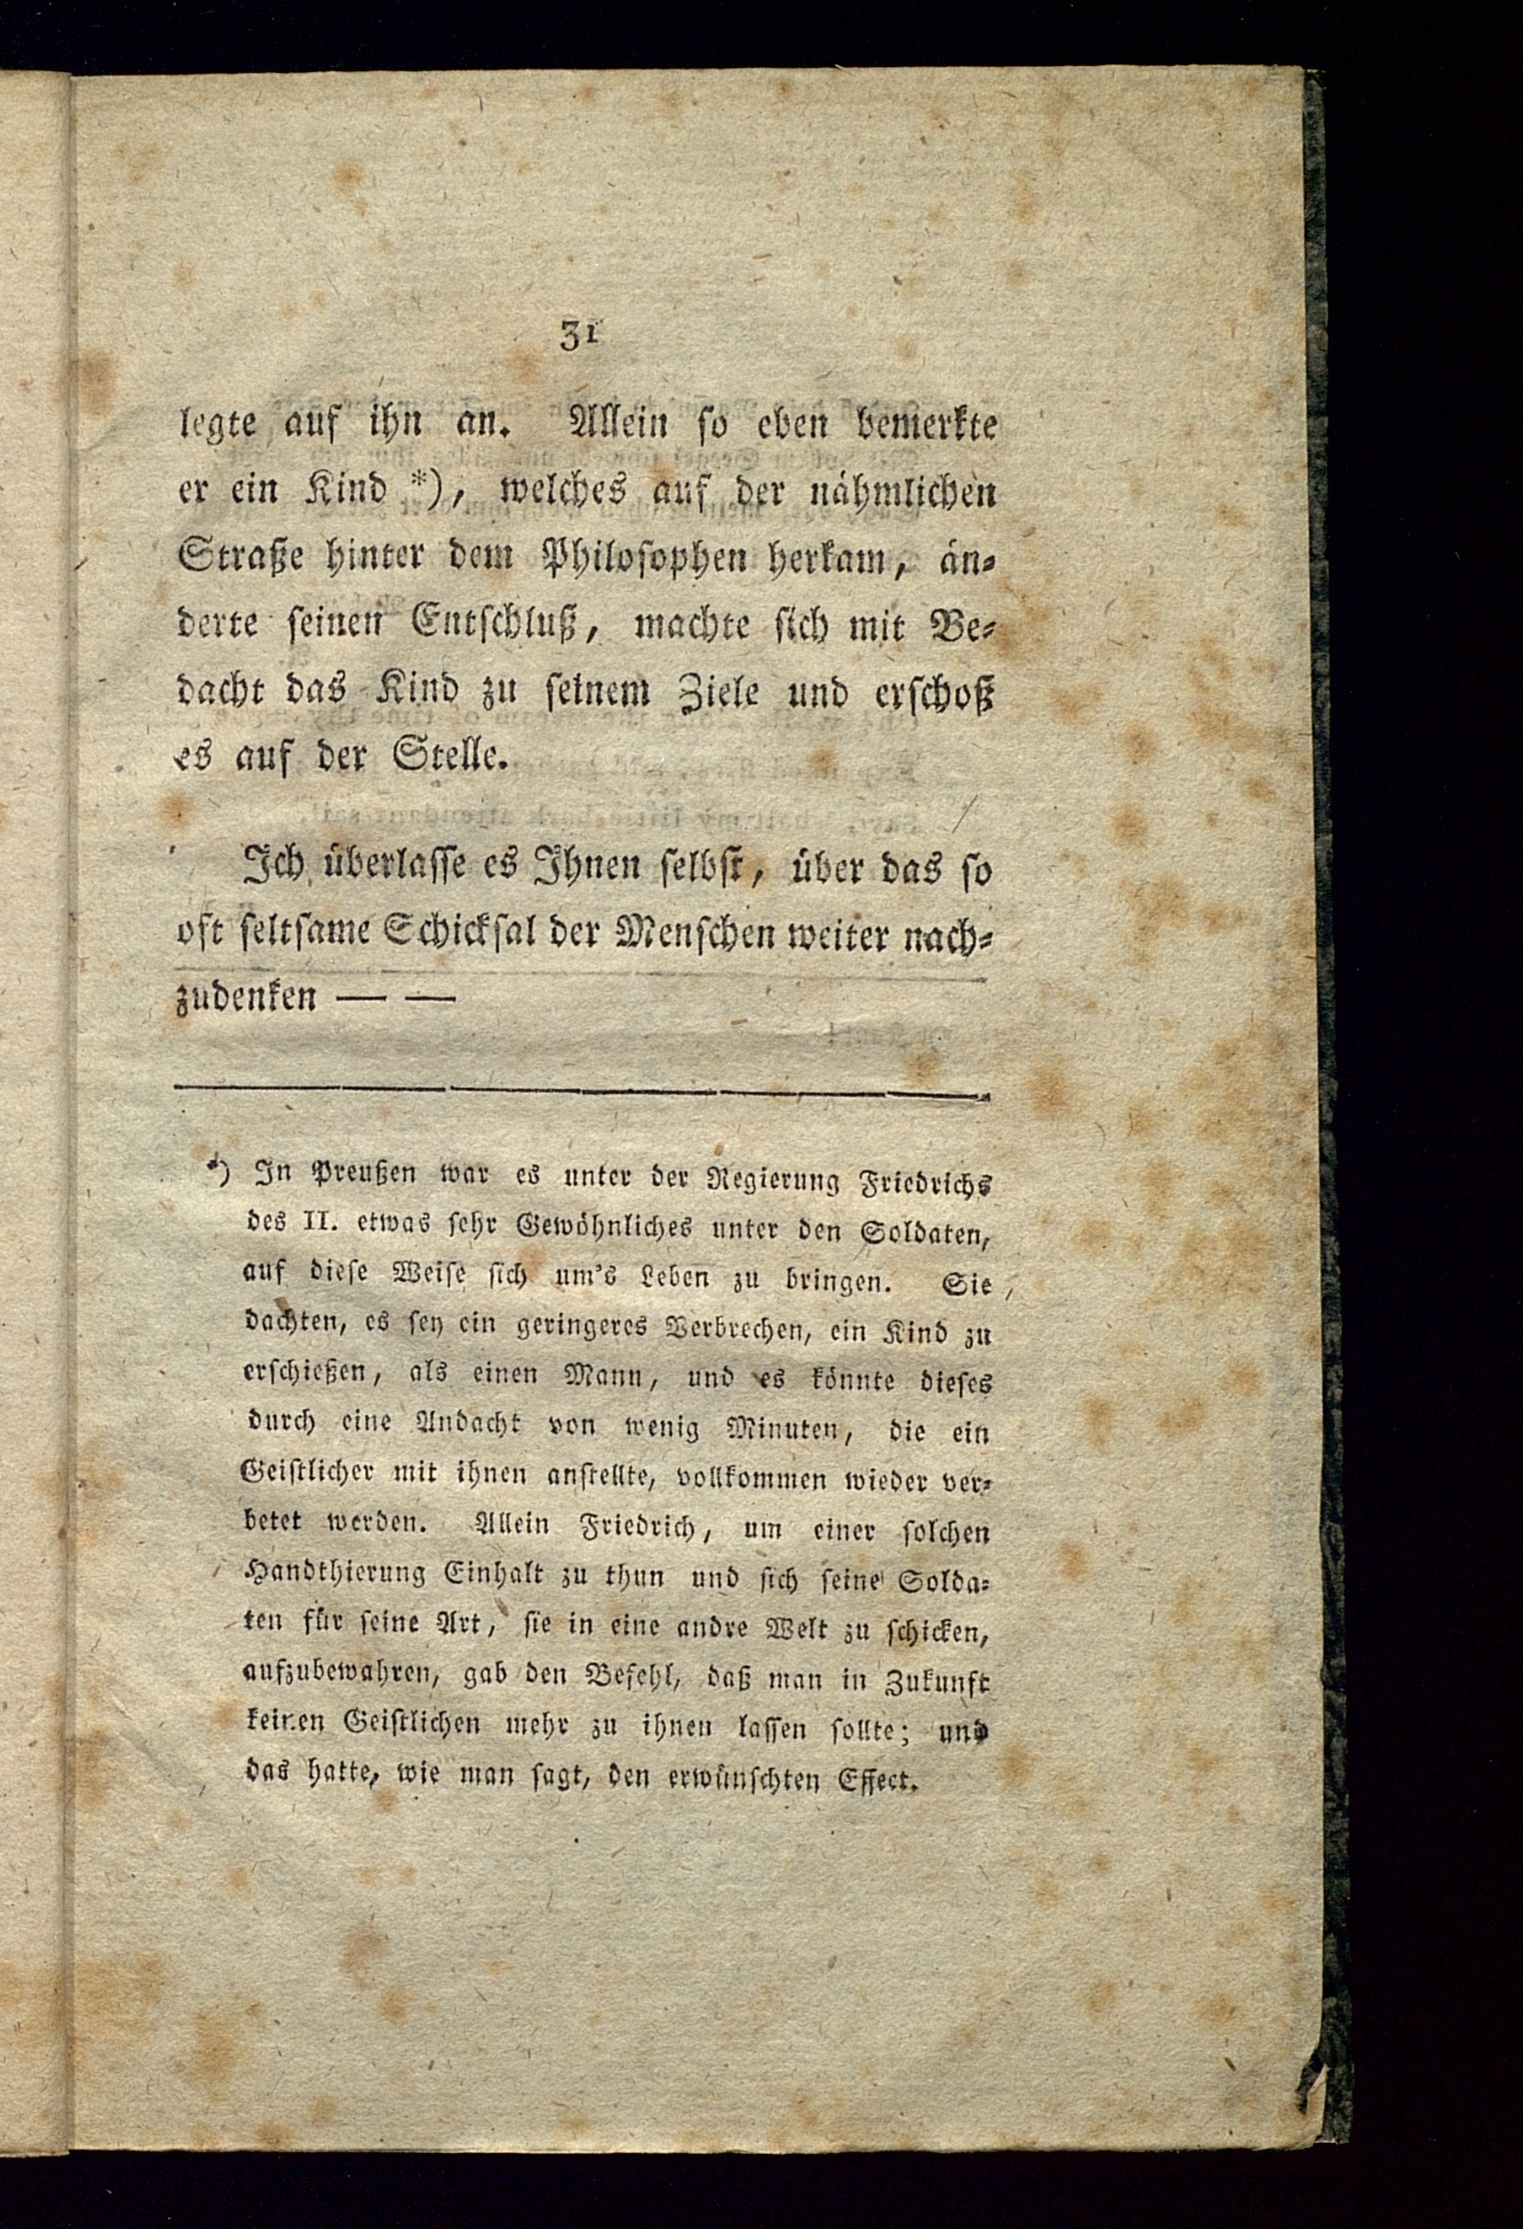 31
legte auf ihn an. Allein so eben bemerkte
er ein Kind *), welches auf der nähmlichen
Straße hinter dem Philosophen herkam, än-
derte seinen Entschluß, machte sich mit Be-
dacht das Kind zu seinem Ziele und erschoß
es auf der Stelle.
Ich überlasse es Ihnen selbst, über das so
oft seltsame Schicksal der Menschen weiter nach-
zudenken — —
*) In Preußen war es unter der Regierung Friedrichs
des II. etwas sehr Gewöhnliches unter den Soldaten,
auf diese Weise sich um's Leben zu bringen. Sie
dachten, es sey ein geringeres Verbrechen, ein Kind zu
erschießen, als einen Mann, und es könnte dieses
durch eine Andacht von wenig Minuten, die ein
Geistlicher mit ihnen anstellte, vollkommen wieder ver-
betet werden. Allein Friedrich, um einer solchen
Handthierung Einhalt zu thun und sich seine Solda-
ten für seine Art, sie in eine andre Welt zu schicken,
aufzubewahren, gab den Befehl, daß man in Zukunft
keinen Geistlichen mehr zu ihnen lassen sollte; und
das hatte, wie man sagt, den erwünschten Effect.